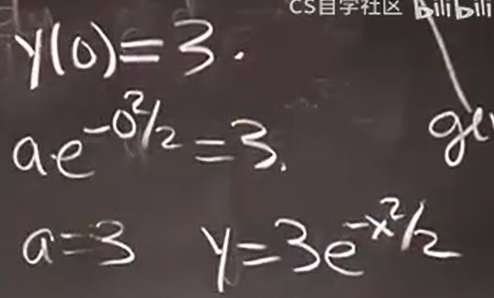 CS自学社区 bilibili
y(0)=3.
ae^{-0^2/2}=3.
a=3 y=3e^{-x^2/2}